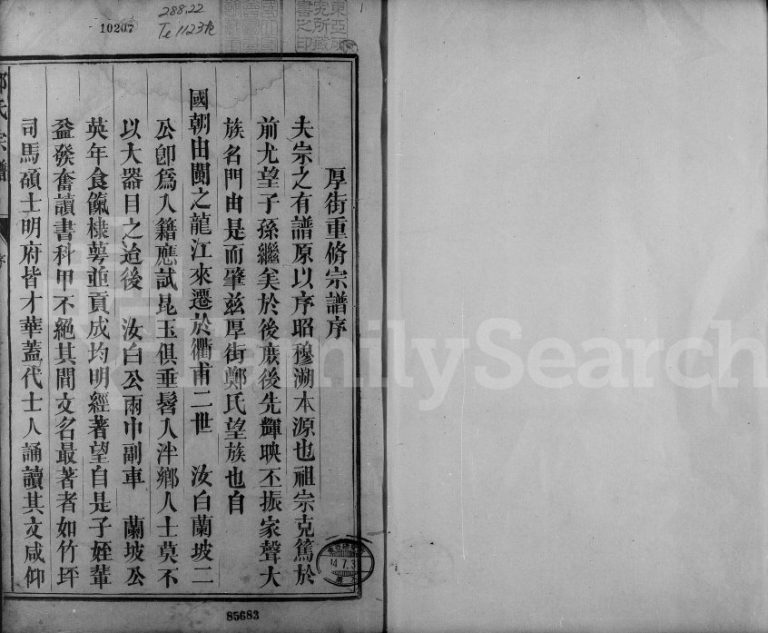 厚街重脩宗譜序
夫宗之有譜原以序昭穆溯本源也祖宗克篤於
前尤望子孫繼美於後庻後先輝映丕振家聲大
族名門由是而肇茲厚街鄭氏望族也自
國朝由閩之龍江來遷於衢甫二世 汝白蘭坡二
公卽爲入籍應試昆玉俱垂髫入泮鄉人士莫不
以大器目之迨後 汝白公兩中副車 蘭坡公
英年食餼棣萼並貢成均明經著望自是子姪輩
益發奮讀書科甲不絕其間文名最著者如竹坪
司馬碩士明府皆才華蓋代士人誦讀其文咸仰
氏宗譜
序
10207
288.22
Te 1123k
85683
14.7.3
FamilySearch